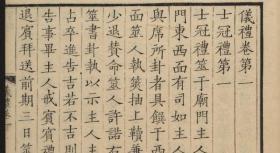 儀禮卷第一
士冠禮第一
士冠禮筮于廟門主人
門東西面有司如主人
與席所卦者具饌于西
面筮人執筴抽上韇兼
少退贊命筮人許諾右
筮書卦執以示主人主
占卒進告吉若不吉則
告事畢主人戒賓賓禮
退賓拜送前期三日筮